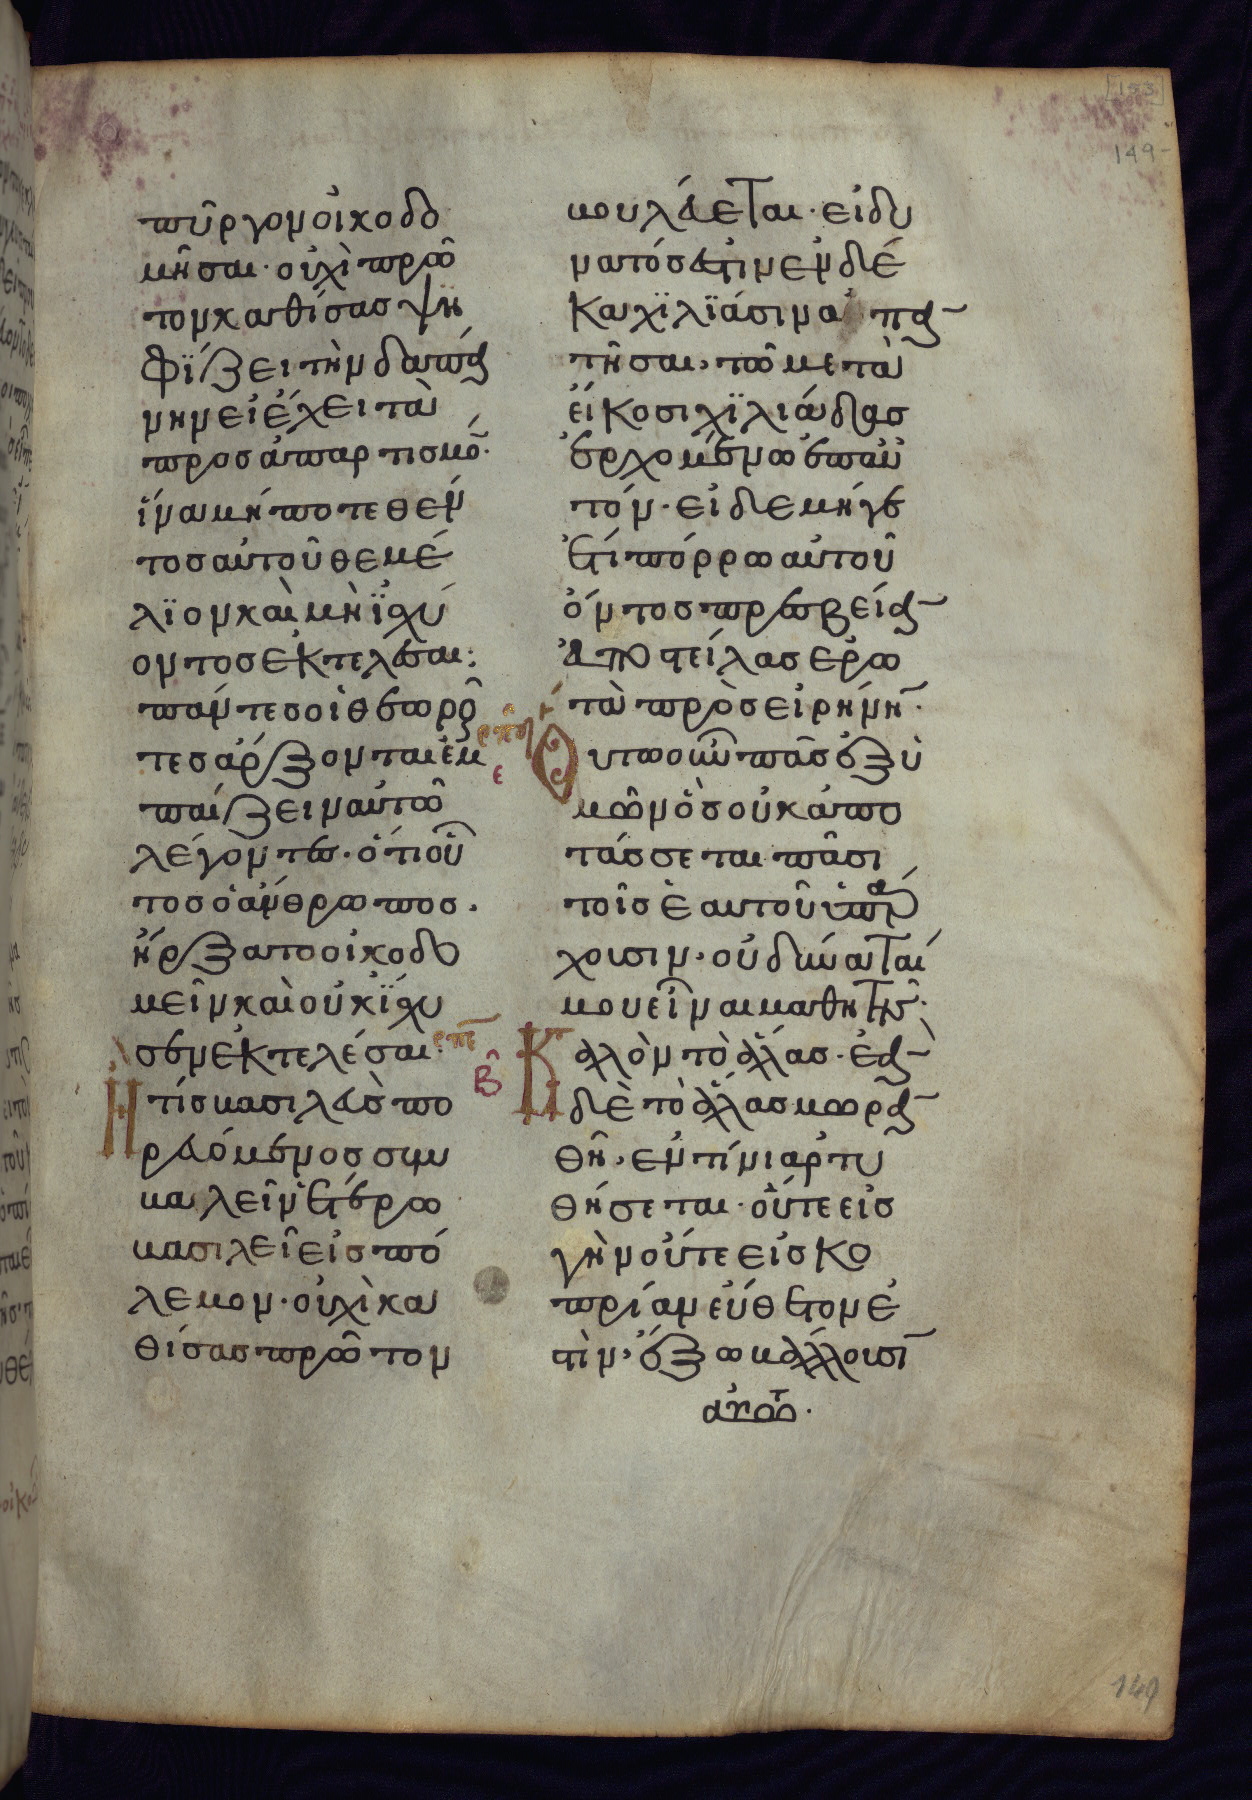 153
149
πύργον οἰκοδο
μῆσαι· οὐχὶ πρῶ
τον καθίσας ψη
φίζει τὴν δαπά
νην εἰ ἔχει τὰ
πρὸς ἀπαρτισμό̄·
ἵνα μή ποτε θέν
τος αὐτοῦ θεμέ
λϊον καὶ μὴ ἰσχύ
οντος ἐκτελέσαι·
πάντες οἱ θεωροῦ
τες ἄρξονται ἐμ
παίζειν αὐτῶ
λέγοντες· ὅτι οὗ
τος ὁ ἄνθρωπος·
ἤρξατο οἰκοδο
μεῖν καὶ οὐκ ἴσχυ
σεν ἐκτελέσαι· ρπγ
β
Ἢ τίς βασιλεὺς πο
ρευόμενος συμ
βαλεῖν ἑτέρω
βασιλεῖ εἰς πό
λεμον· οὐχὶ κα
θίσας πρῶτον
βουλεύεται· εἰ δυ
νατός ἐστιν ἐν δέ
κα χϊλϊάσιν ἀπα
τῆσαι, τῶ μετὰ
εἴκοσι χϊλιάδας
ἐρχομένω ἐπ' αὐ
τόν· εἰ δὲ μήγε
ἔτι πόρρω αὐτοῦ
ὄντος πρεσβείαν
ἀποστείλας ἐρω
τὰ πρὸς εἰρήνη̄·
ε
Οὕτως οὖν πᾶς ἐξ ὑ
μῶν ὃς οὐκ ἀπο
τάσσεται πᾶσι
τοῖς ἑαυτοῦ ὑπάρ
χουσιν· οὐ δύναταί
μου εἶναι μαθητής·
Καλὸν τὸ ἅλας· ἐὰν
δὲ τὸ ἅλας μωραν
θῆ· ἐν τίνι ἀρτυ
θήσεται· οὔτε εἰς
γῆν οὔτε εἰς κο
πρίαν εὔθετόν ἐ
στιν· ἔξω βάλλουσῑ
αὐτό·
149